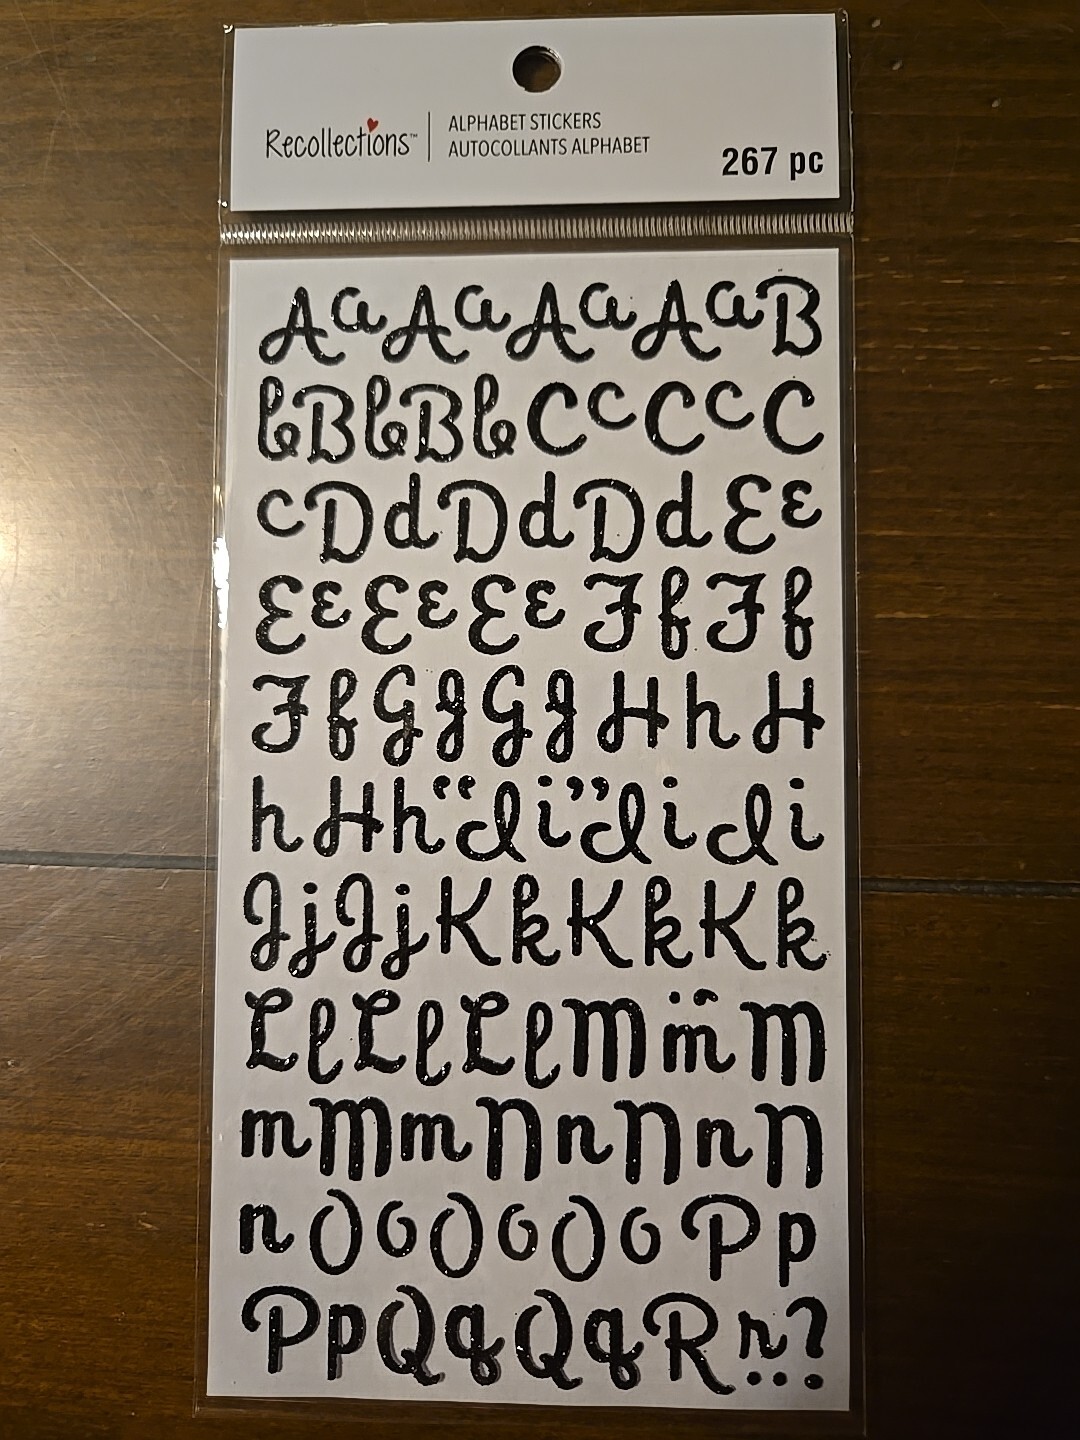 Recollections™
ALPHABET STICKERS
AUTOCOLLANTS ALPHABET
267 pc
A a A a A a A a B
b B b B b C c C c C
c D d D d D d E e
E e E e E e F f F f
F f G g G g H h H
h H h “ I i ” I i I i
J j J j K k K k K k
L l L l L l M m̈ M
m M m N n N n N
n O o O o O o P p
P p Q q Q q R r . . ?